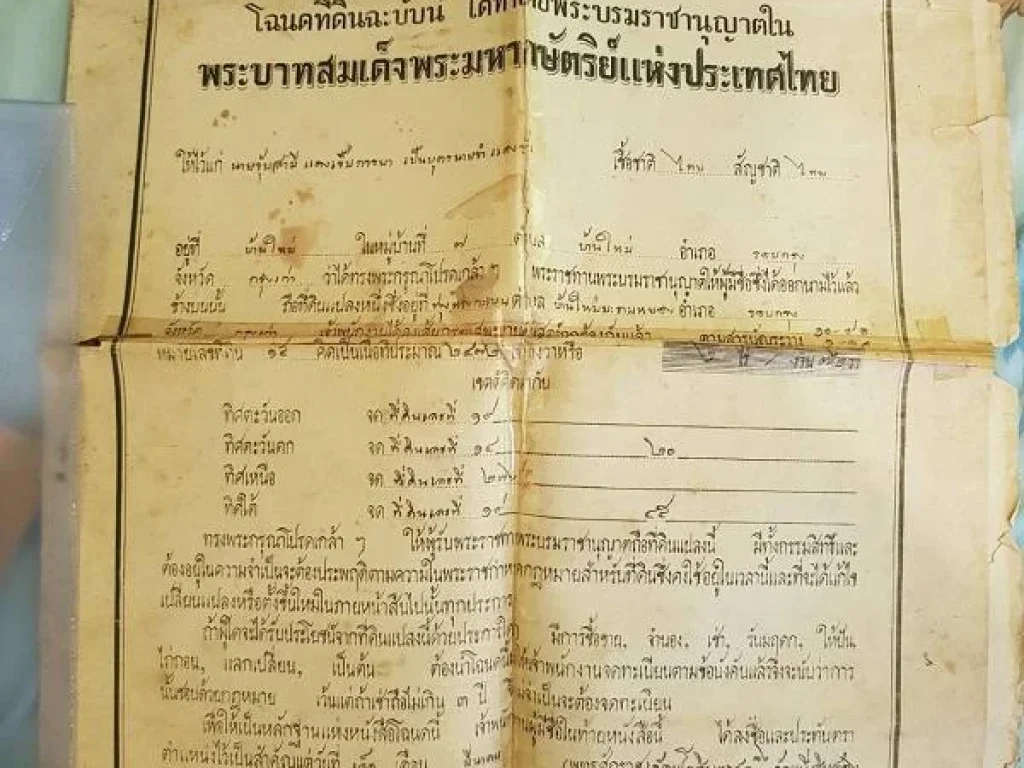 โฉนดที่ดินฉะบับนี้ ได้ทำโดยพระบรมราชานุญาตใน
พระบาทสมเด็จพระมหากษัตริย์แห่งประเทศไทย
ให้ไว้แก่ นาย เป็นบุตรนายขำ เชื้อชาติ ไทย สัญชาติ ไทย
อยู่ที่ บ้านใหม่ ในหมู่บ้านที่ ๗ ตำบล บ้านใหม่ อำเภอ รอบกรุง
จังหวัด กรุงเก่า ว่าได้ทรงพระกรุณาโปรดเกล้า ๆ พระราชทานพระบรมราชานุญาตให้ผู้มีชื่อซึ่งได้ออกนามไว้แล้ว
ข้างบนนั้น ถือที่ดินแปลงหนึ่งซึ่งอยู่ที่ ตำบล อำเภอ รอบกรุง
จังหวัด กรุงเก่า
หมายเลขที่ดิน ๑๕ คิดเป็นเนื้อที่ประมาณ ๒๔๗๒ ตารางวาหรือ ไร่ งาน วา
เขตต์ติดต่อกัน
ทิศตะวันออก จด ที่ดินเลขที่ ๑๙
ทิศตะวันตก จด ที่ดินเลขที่ ๑๔ ๒๐
ทิศเหนือ จด ที่ดินเลขที่
ทิศใต้ จด ที่ดินเลขที่ ๑๔
ทรงพระกรุณาโปรดเกล้า ๆ ให้ผู้รับพระราชทานพระบรมราชานุญาตถือที่ดินแปลงนี้ มีทั้งกรรมสิทธิ์และ
ต้องอยู่ในความจำเป็นจะต้องประพฤติตามความในพระราชกำหนดกฎหมายสำหรับที่ดินซึ่งคงใช้อยู่ในเวลานี้และที่จะได้แก้ไข
เปลี่ยนแปลงหรือตั้งขึ้นใหม่ในภายหน้าสืบไปนั้นทุกประการ
ถ้าผู้ใดจะได้รับประโยชน์จากที่ดินแปลงนี้ด้วยประการใดๆ มีการซื้อขาย, จำนอง, เช่า, รับมฤดก, ให้ปัน,
ไถ่ถอน, แลกเปลี่ยน, เป็นต้น ต้องนำโฉนดนี้ให้เจ้าพนักงานจดทะเบียนตามข้อบังคับแล้วจึงจะนับว่าการ
นั้นชอบด้วยกฎหมาย เว้นแต่ถ้าเช่าถือไม่เกิน ๓ ปี จึงไม่จำเป็นจะต้องจดทะเบียน
เพื่อให้เป็นหลักฐานแห่งหนังสือโฉนดนี้ เจ้าพนักงานผู้มีชื่อในท้ายหนังสือนี้ ได้ลงชื่อและประทับตรา
ตำแหน่งไว้เป็นสำคัญแต่วันที่ เดือน